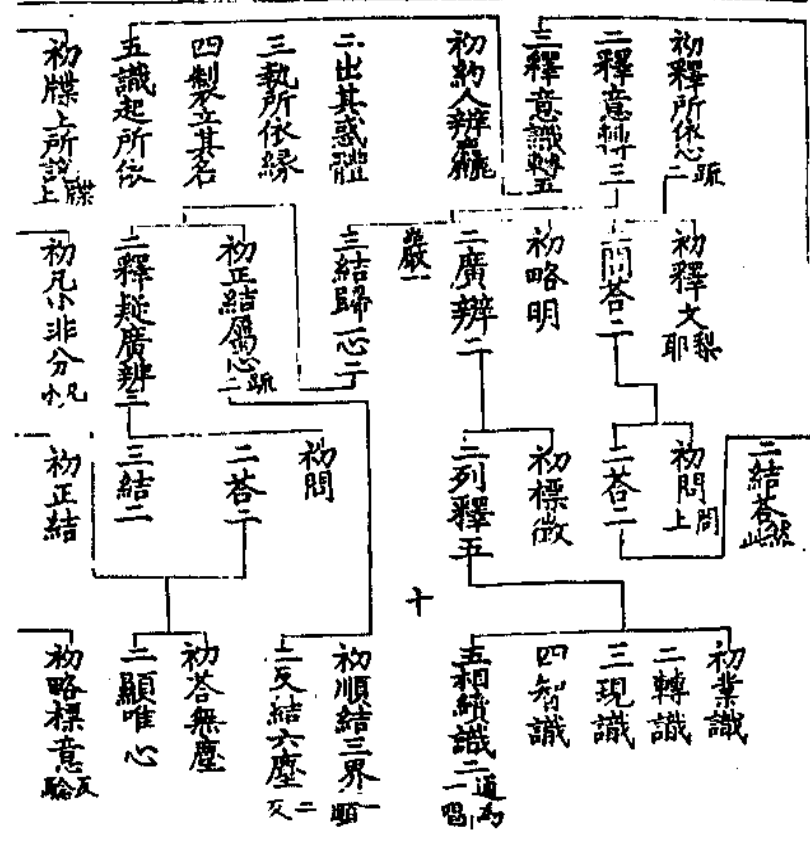 初釋所依心二疏
二釋意轉三
三釋意識轉五
初約人辨麤
二出其惑體
三執所依緣
四製立其名
五識起所依
初牒上所說上牒
初釋文耶梨
二問答二
初略明
二廣辨二
嚴一
三結歸一心二
初正結屬心二疏
二釋疑廣辨三
初凡小非分小凡
二結答
初問上問
二答二
初標徵
二列釋五
初問
二答二
三結二
初正結
初業識
二轉識
三現識
四智識
五相續識二
十
初順結三界一順
二反結六塵二反
初答無塵
二顯唯心
初略標意驗反